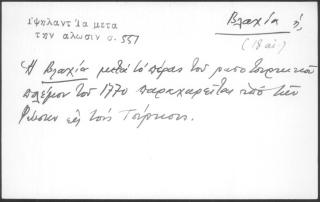 Υψηλαντ Ία μετα
την αλωσιν σ. 551
Βλαχία ἡ,
(18 αἰ.)
Ἡ Βλαχία μετὰ τὸ πέρας τοῦ ρωσοτουρκικοῦ
πολέμου τοῦ 1770 παραχωρεῖται ὑπὸ τῶν
Ρώσων εἰς τοὺς Τούρκους.